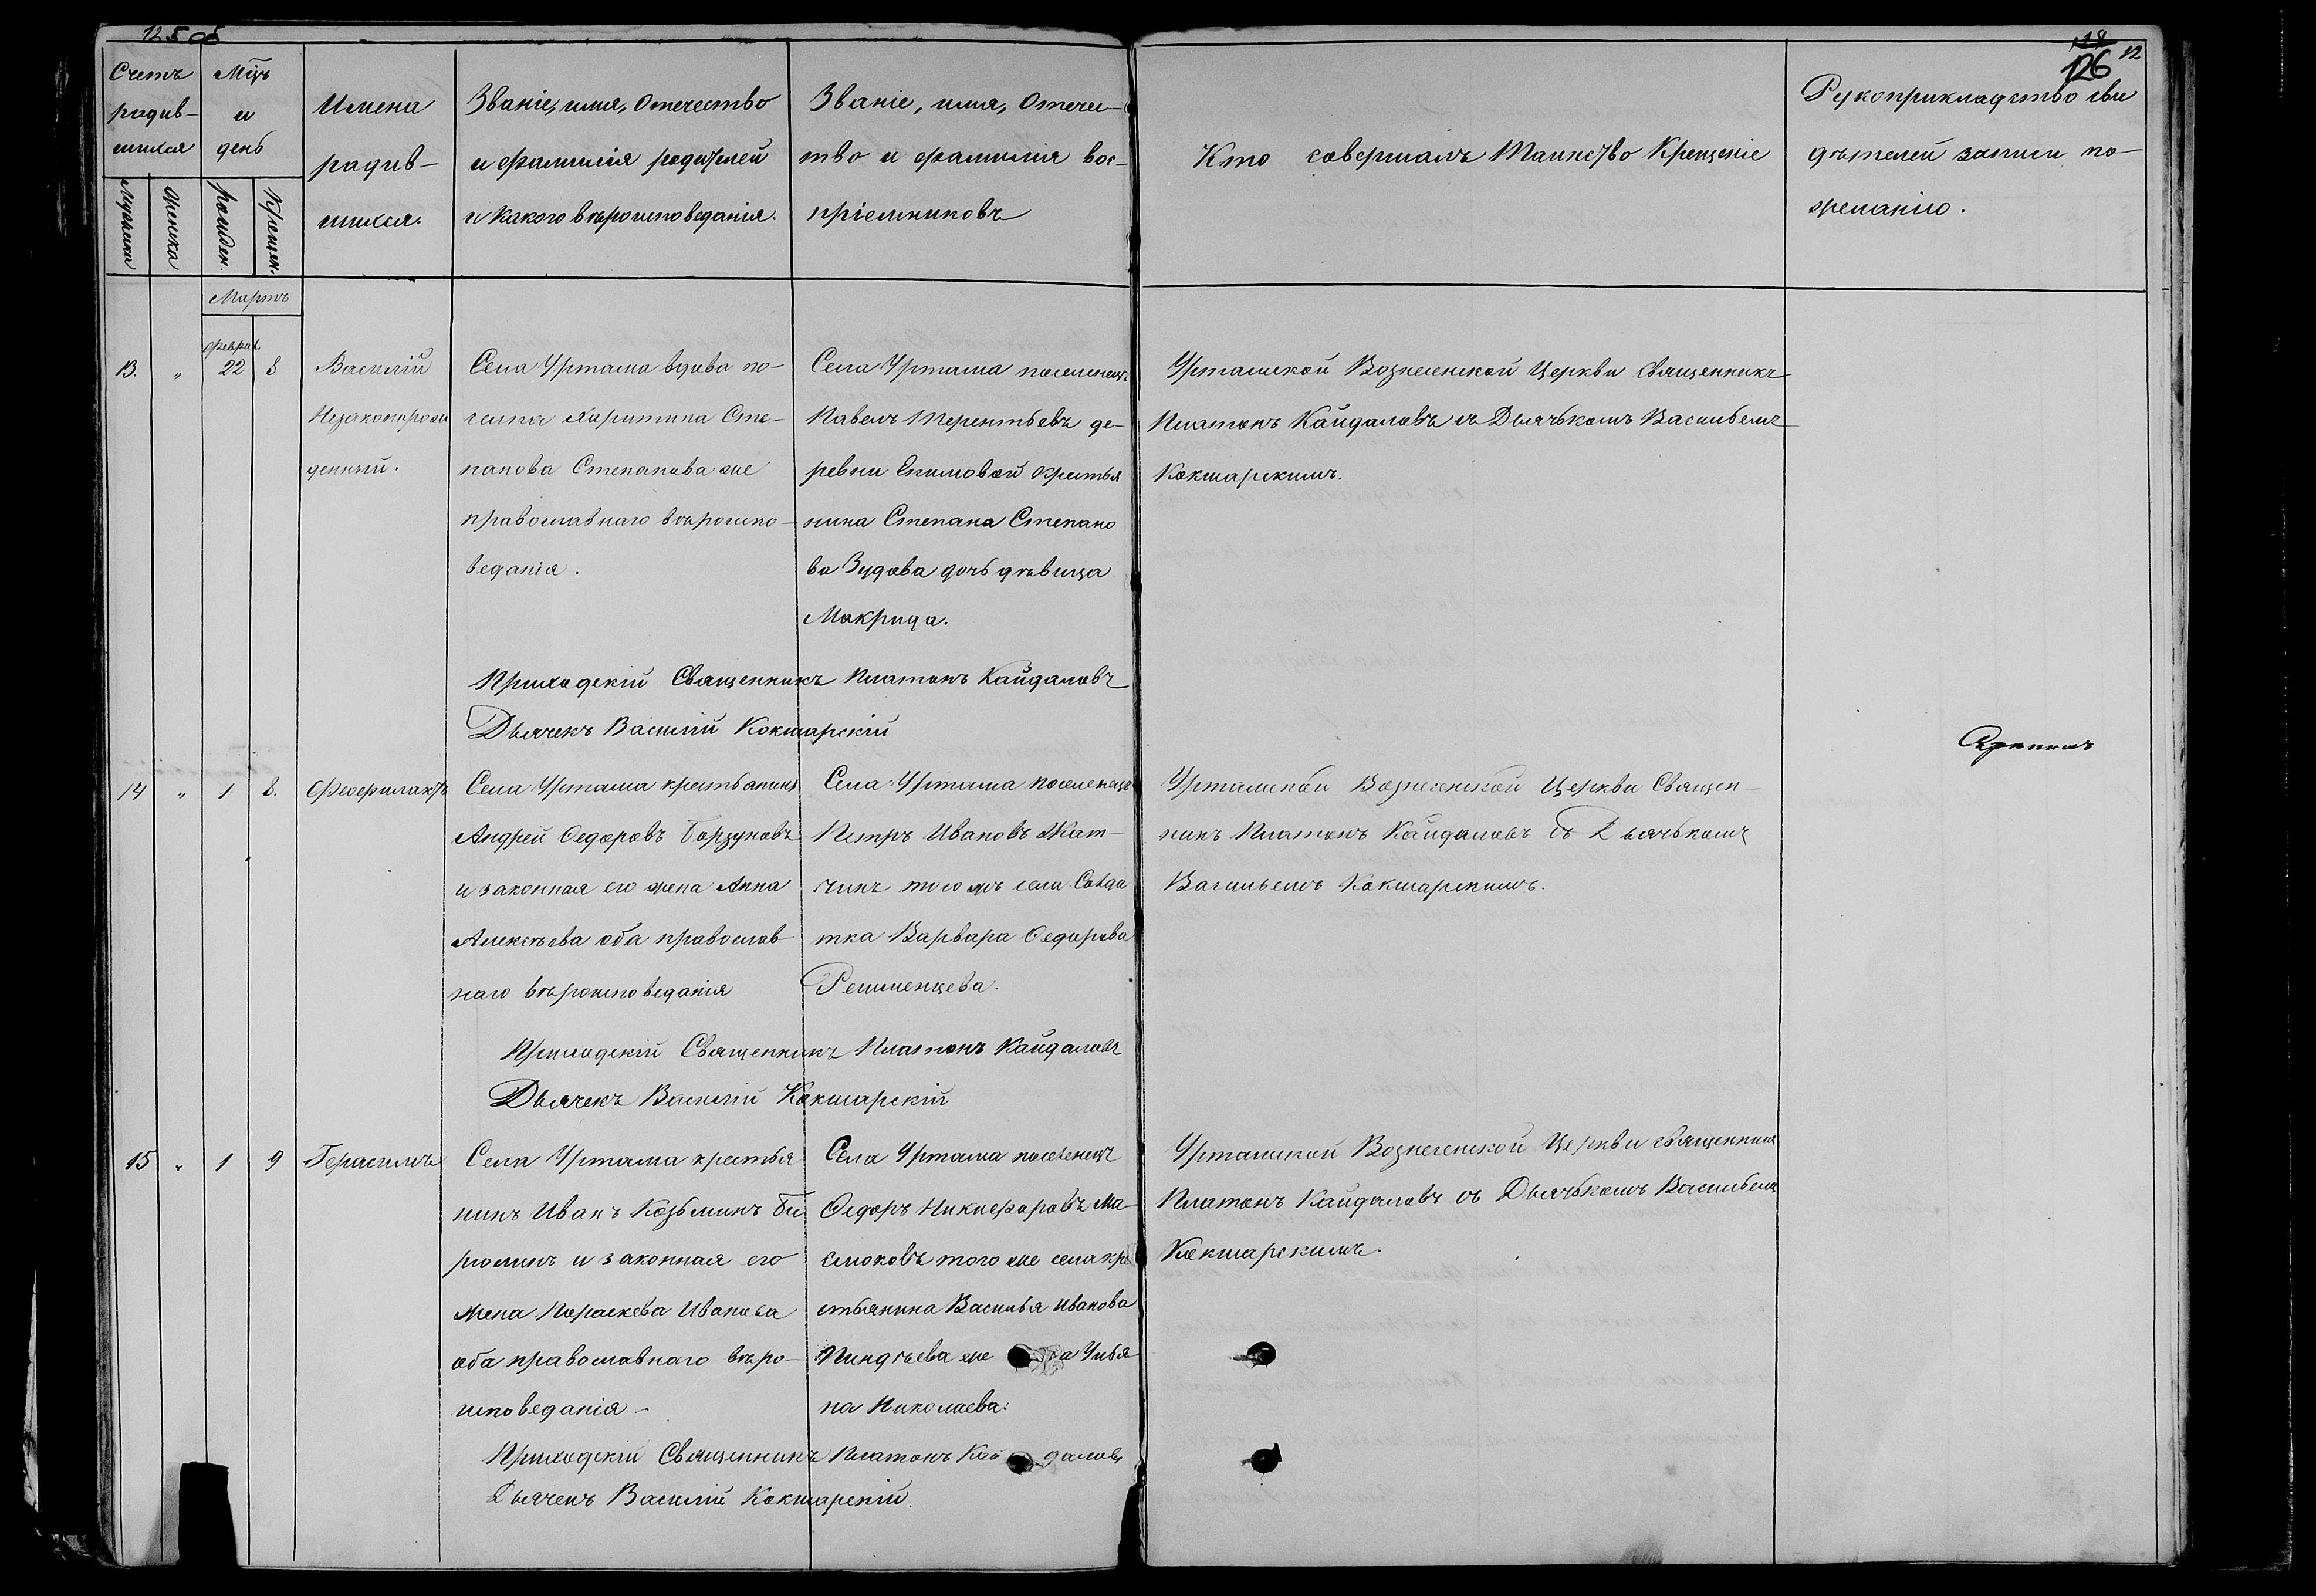 125 об
18
126
12
Счетъ
родив-
шихся
Мужеска
Женска
Мцъ
и
день
рожден.
Крещен.
Имена
родив-
шихся.
Званіе, имя, Отечество
и фамилія родителей
и какого вѣроисповеданія.
Званіе, имя, Отече-
тво и фамилія вос-
пріемниковъ
Кто совершалъ Таинство Крещеніе
Рукоприкладство сви
дѣтелей записи по-
желанію.
Мартъ
Феврал.
13. „ 22 8
Василій
Незаконнорож
денный.
Села Уртама вдова по-
Харитина Сте-
панова Степанова же
православнаго вѣроиспо-
веданія.
Села Уртама поселенецъ
Павелъ Терентьевъ де-
ревни Екимовой крестья
нина Степана Степано
ва Зудова дочь дѣвица
Макрида.
Уртамской Вознесенской Церкви Священникъ
Платонъ Кайдаловъ съ Дьячькомъ Васильемъ
Кокшарскимъ.
Приходскій Священникъ Платонъ Кайдаловъ
Дьячекъ Василій Кокшарскій
14 „ 1 8.
Феофилактъ
Села Уртама крестьянинъ
Андрей Ѳедоровъ Борзуновъ
и законная его жена Анна
Алексѣева оба православ
наго вѣроисповеданія
Села Уртама поселенецъ
Петръ Ивановъ
того жъ села Солда
тка Варвара Ѳедорова
Уртамской Вознесенской Церкви Священ-
никъ Платонъ Кайдаловъ съ Дьячькомъ
Васильемъ Кокшарскимъ.
Приходскій Священникъ Платонъ Кайдаловъ
Дьячекъ Василій Кокшарскій
15 „ 1 9
Герасимъ
Села Уртама крестья
нинъ Иванъ Козьминъ Би
рюлинъ и законная его
жена Параскева Иванова
оба православнаго вѣро-
исповеданія -
Села Уртама поселенецъ
Ѳедоръ Никифоровъ Ма-
смоковъ того же села кре
стьянина Василья Иванова
Пиндѣева же на Улья
на Николаева.
Уртамской Вознесенской Церкви священникъ
Платонъ Кайдаловъ съ Дьячькомъ Васильемъ
Кокшарскимъ.
Приходскій Священникъ Платонъ Кай даловъ
Дьячекъ Василій Кокшарскій.